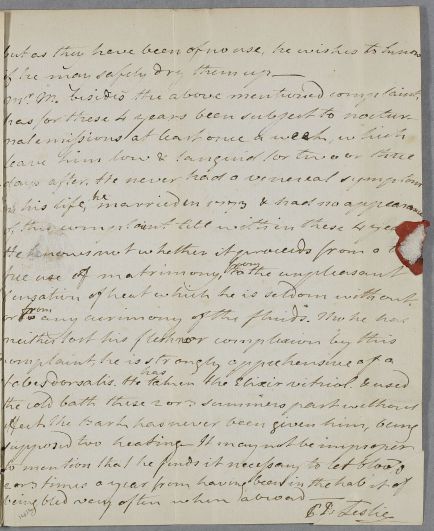 but as they have been of no use, he wishes to know
if he may safely dry them up —
Mr. M. besides the above mentioned complaint,
has for these 4 years been subject to noctur
nal emissions at least once a week, which
leave him low & languid for two or three
days after. He never had a venereal symptom
in his life, he married in 1773 & had no appearance
of this complaint till within these 4 years
He knows not whether it proceeds from a
free use of matrimony, from the unpleasant
sensation of heat which he is seldom without,
or from any acrimony of the fluids. Tho he has
neither lost his flesh nor complexion by this
complaint, he is strongly apprehensive of a
tabes dorsalis. He has taken the Elixir vitriol. & used
the cold bath these 2 or 3 summers past without
effect. The Bark has never been given him, being
supposed too heating. It may not be improper
to mention that he finds it necessary to let blood
2 or 3 times a year from having been in the habit of
being bled very often when abroad —
Leslie